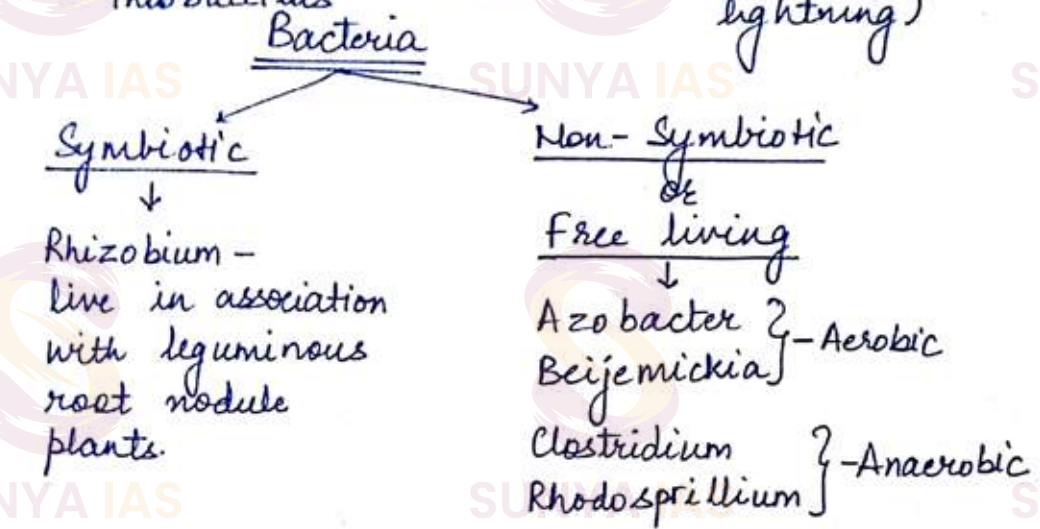 lightning)
Bacteria
Symbiotic
↓
Rhizobium –
live in association
with leguminous
root nodule
plants.
Non- Symbiotic
or
Free living
↓
Azobacter
Beijemickia
} – Aerobic
Clostridium
Rhodosprillium
} -Anaerobic
SUNYA IAS